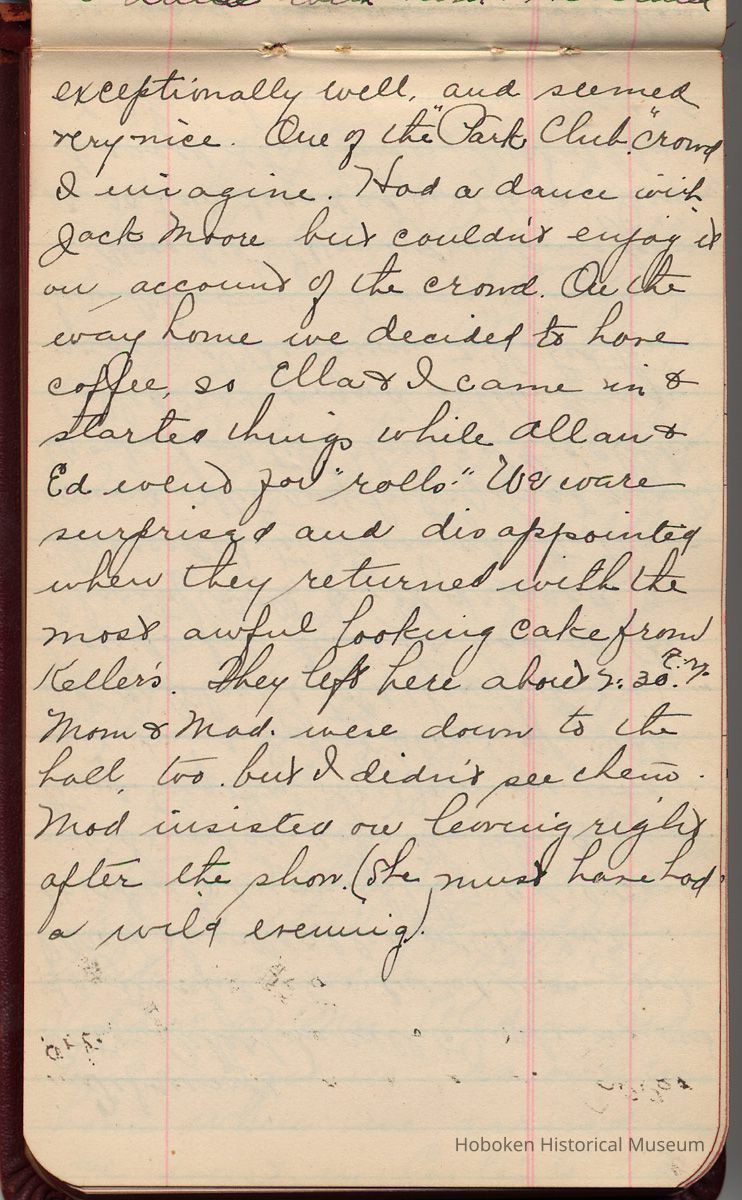 exceptionally well, and seemed
very nice. One of the "Park Club" crowd
I imagine. Had a dance with
Jack Moore but couldn't enjoy it
on account of the crowd. On the
way home we decided to have
coffee, so Ella & I came in &
started things while Allan &
Ed went for "rolls." We ware
surprised and disappointed
when they returned with the
most awful looking cake from
Keller's. They left here about 2:30.
Mom & Mad. were down to the
hall, too. but I didn't see them.
Mad insisted on leaving right
after the show. (She must have had
a wild evening).
Hoboken Historical Museum